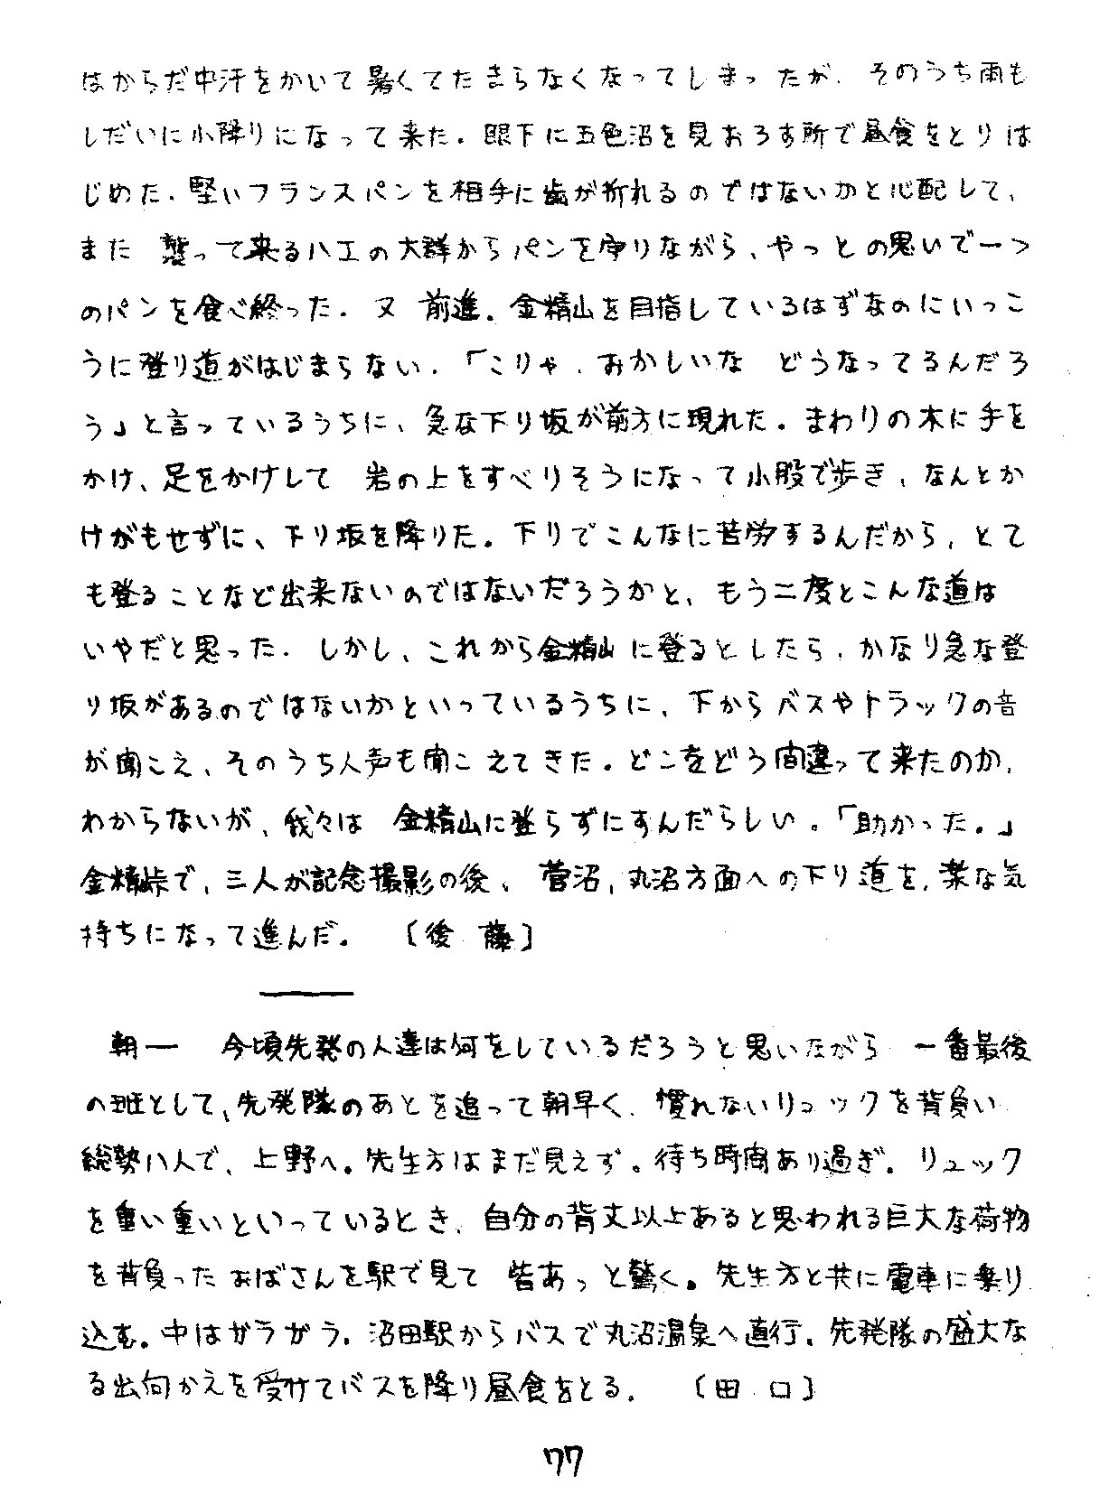 はからだ中汗をかいて暑くてたまらなくなってしまったが、そのうち雨も
しだいに小降りになって来た。眼下に五色沼を見おろす所で昼食をとりは
じめた。堅いフランスパンを相手に歯が折れるのではないかと心配して、
また 襲って来るハエの大群からパンを守りながら、やっとの思いで一つ
のパンを食べ終った。又 前進。金精山を目指しているはずなのにいっこ
うに登り道がはじまらない。「こりゃ、おかしいな どうなってるんだろ
う」と言っているうちに、急な下り坂が前方に現れた。まわりの木に手を
かけ、足をかけして 岩の上をすべりそうになって小股で歩き、なんとか
けがもせずに、下り坂を降りた。下りでこんなに苦労するんだから、とて
も登ることなど出来ないのではないだろうかと、もう二度とこんな道は
いやだと思った。しかし、これから金精山に登るとしたら、かなり急な登
り坂があるのではないかといっているうちに、下からバスやトラックの音
が聞こえ、そのうち人声も聞こえてきた。どこをどう間違って来たのか、
わからないが、我々は 金精山に登らずにすんだらしい。「助かった。」
金精峠で、三人が記念撮影の後、菅沼、丸沼方面への下り道を、楽な気
持ちになって進んだ。 〔後 藤〕
朝― 今頃先発の人達は何をしているだろうと思いながら 一番最後
の班として、先発隊のあとを追って朝早く、慣れないリュックを背負い
総勢八人で、上野へ。先生方はまだ見えず。待ち時間あり過ぎ。リュック
を重い重いといっているとき、自分の背丈以上あると思われる巨大な荷物
を背負ったおばさんを駅で見て 皆あっと驚く。先生方と共に電車に乗り
込む。中はガラガラ。沼田駅からバスで丸沼温泉へ直行。先発隊の盛大な
る出向かえを受けてバスを降り昼食をとる。 〔田 口〕
77